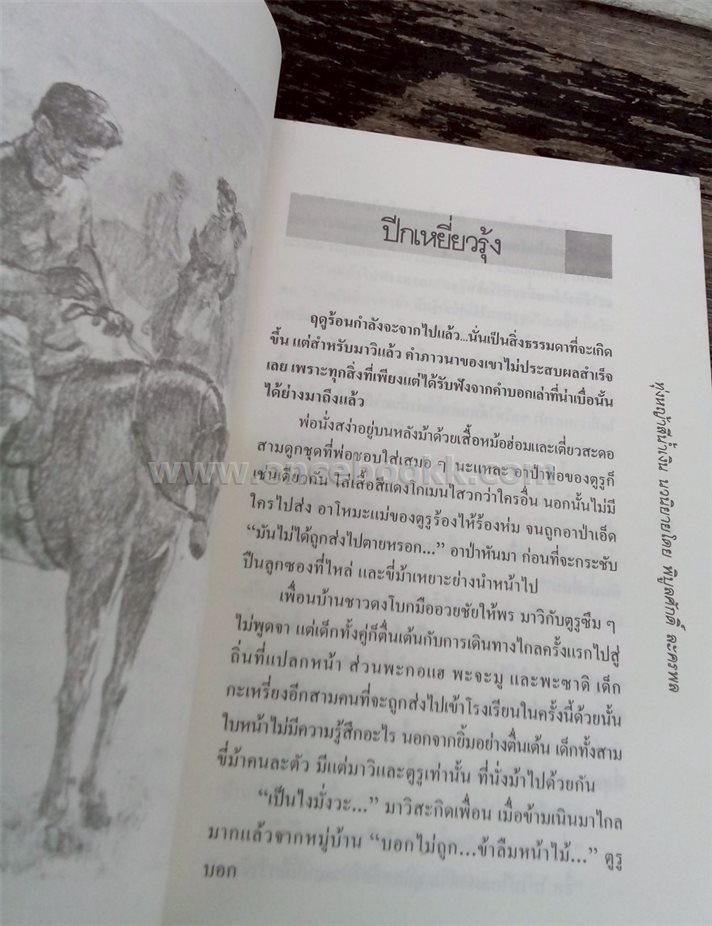 ปีกเหยี่ยวรุ้ง
ฤดูร้อนกำลังจะจากไปแล้ว...นั่นเป็นสิ่งธรรมดาที่จะเกิด
ขึ้น แต่สำหรับมาวิแล้ว คำภาวนาของเขาไม่ประสบผลสำเร็จ
เลย เพราะทุกสิ่งที่เพียงแต่ได้รับฟังจากคำบอกเล่าที่น่าเบื่อนั้น
ได้ย่างมาถึงแล้ว
พ่อนั่งสง่าอยู่บนหลังม้าด้วยเสื้อหม้อฮ่อมและเตี่ยวสะดอ
สามดูกชุดที่พ่อชอบใส่เสมอ ๆ นะแหละ อาป่าพ่อของตูรูก็
เช่นเดียวกัน ใส่เสื้อสีแดงโกเมนใสวกว่าใครอื่น นอกนั้นไม่มี
ใครไปส่ง อาโหมะแม่ของตูรูร้องไห้ร้องห่ม จนถูกอาป่าเอ็ด
“มันไม่ได้ถูกส่งไปตายหรอก...” อาป่าหันมา ก่อนที่จะกระชับ
ปืนลูกซองที่ไหล่ และขี่ม้าเหยาะย่างนำหน้าไป
เพื่อนบ้านชาวดงโบกมืออวยชัยให้พร มาวิกับตูรูซึม ๆ
ไม่พูดจา แต่เด็กทั้งคู่ก็ตื่นเต้นกับการเดินทางไกลครั้งแรกไปสู่
ถิ่นที่แปลกหน้า ส่วนพะกอแฮ พะจะมู และพะซาดิ เด็ก
กะเหรี่ยงอีกสามคนที่จะถูกส่งไปเข้าโรงเรียนในครั้งนี้ด้วยนั้น
ใบหน้าไม่มีความรู้สึกอะไร นอกจากยิ้มอย่างตื่นเต้น เด็กทั้งสาม
ขี่ม้าคนละตัว มีแต่มาวิและตูรูเท่านั้น ที่นั่งม้าไปด้วยกัน
“เป็นไงมั่งวะ...” มาวิสะกิดเพื่อน เมื่อข้ามเนินมาไกล
มากแล้วจากหมู่บ้าน “บอกไม่ถูก...ข้าลืมหน้าไม้...” ตูรู
บอก
ทุ่งหญ้าสีน้ำเงิน นวนิยายโดย พิบูลศักดิ์ ละครพล